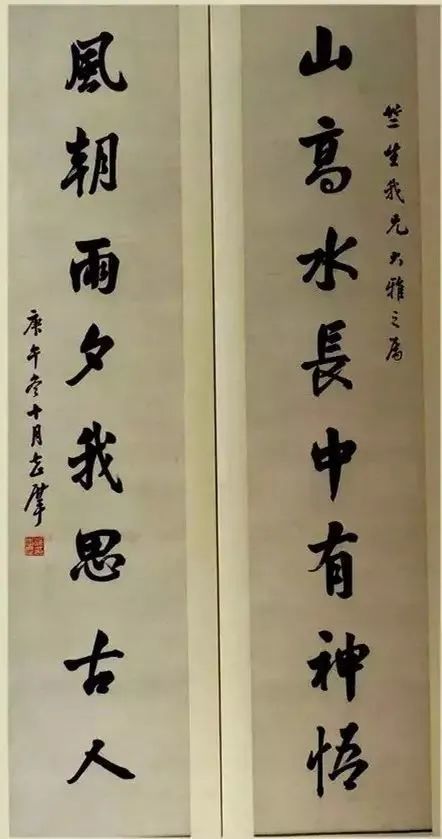 竺生我兄大雅之属
山高水長中有神悟
風朝雨夕我思古人
庚午冬十月志摩